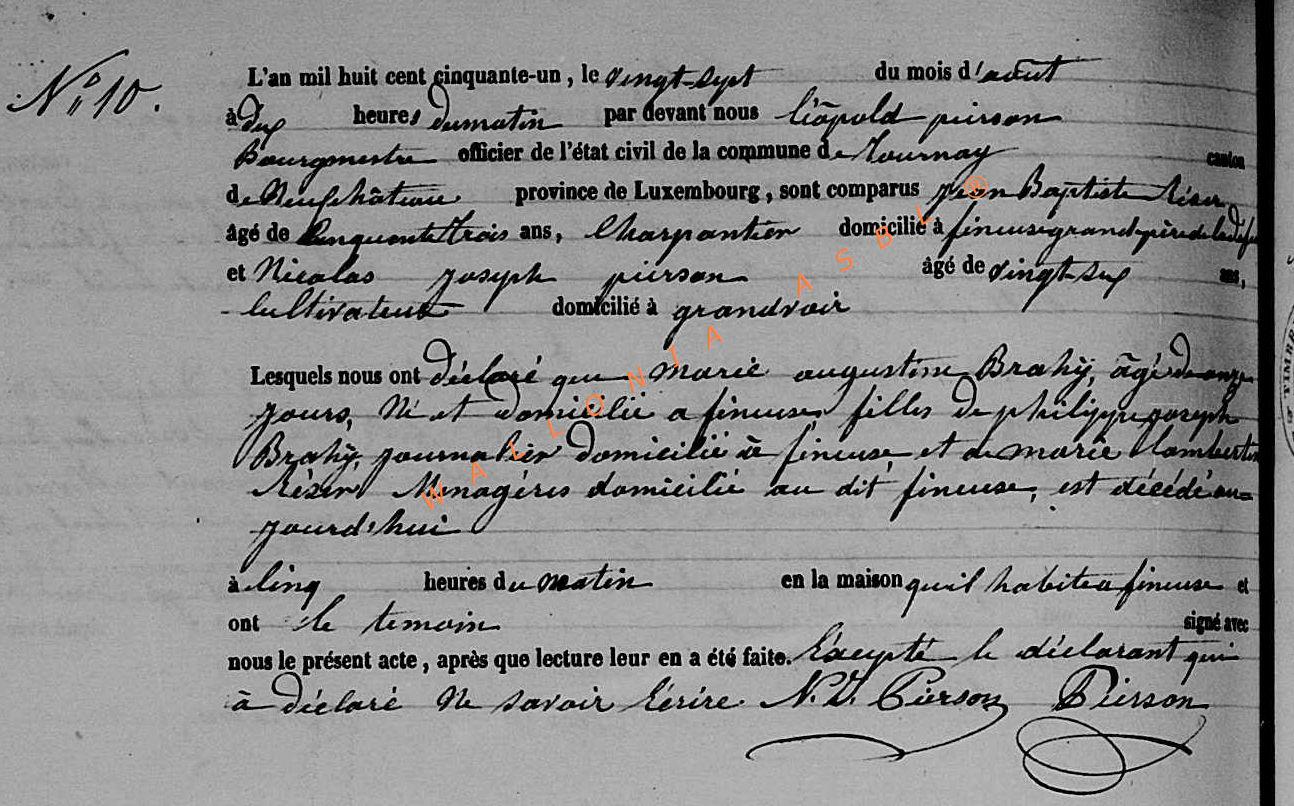 N° 10.
L'an mil huit cent cinquante-un, le vingt-sept du mois d'août
à dix heures du matin par devant nous Léopold pierson
Bourgmestre officier de l'état civil de la commune de Tournay canton
de Neufchâteau province de Luxembourg, sont comparus jean Baptiste
âgé de Cinquante trois ans, Charpentier domicilié à fineuse grand-père de la
et Nicolas joseph pierson âgé de vingt-six ans,
Cultivateur domicilié à grandvoir
Lesquels nous ont déclaré que marie augustine Brahÿ, âgé de onze
jours, Né et domicilié a fineuse, filles de philippe joseph
Brahÿ, journalier domicilié à fineuse et de marie lambertine
Ménagéres domicilié au dit fineuse, est décédé au=
jourd'hui
à cinq heures du matin en la maison quil habite a fineuse et
ont le temoin signé avec
nous le présent acte, après que lecture leur en a été faite. Éxcepté le déclarant qui
à déclaré Ne savoir Écrire. N. J. Pierson Pierson
WALLONIA ASBL ®